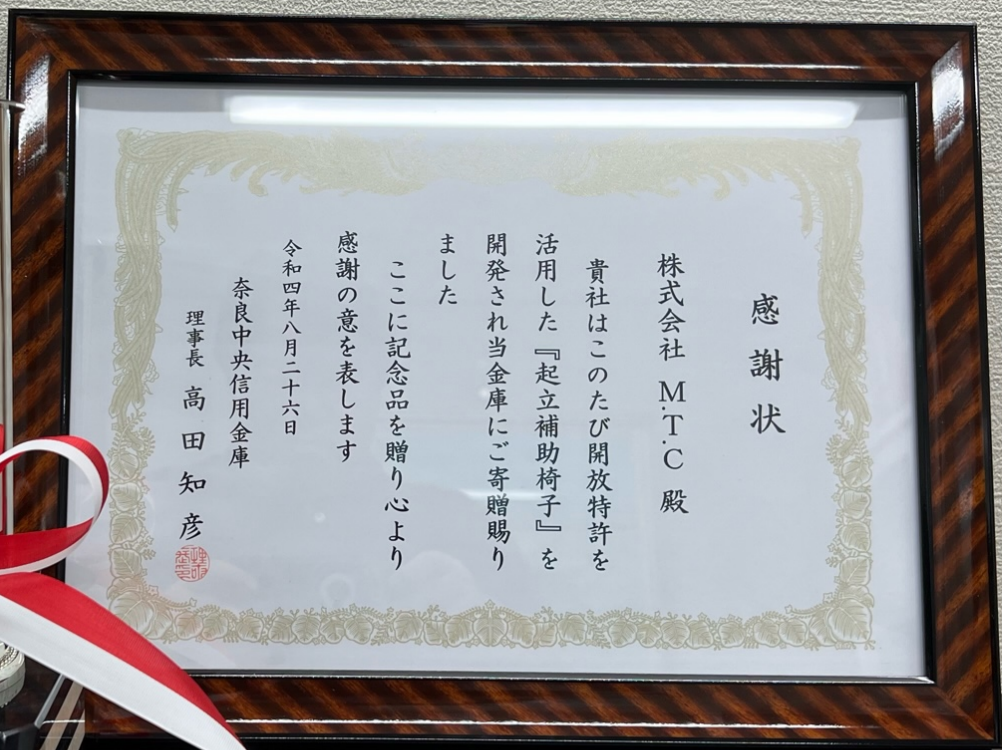 感謝状
株式会社 M.T.C 殿
貴社はこのたび開放特許を
活用した『起立補助椅子』を
開発され当金庫にご寄贈賜り
ました
ここに記念品を贈り心より
感謝の意を表します
令和四年八月二十六日
奈良中央信用金庫
理事長 高田知彦